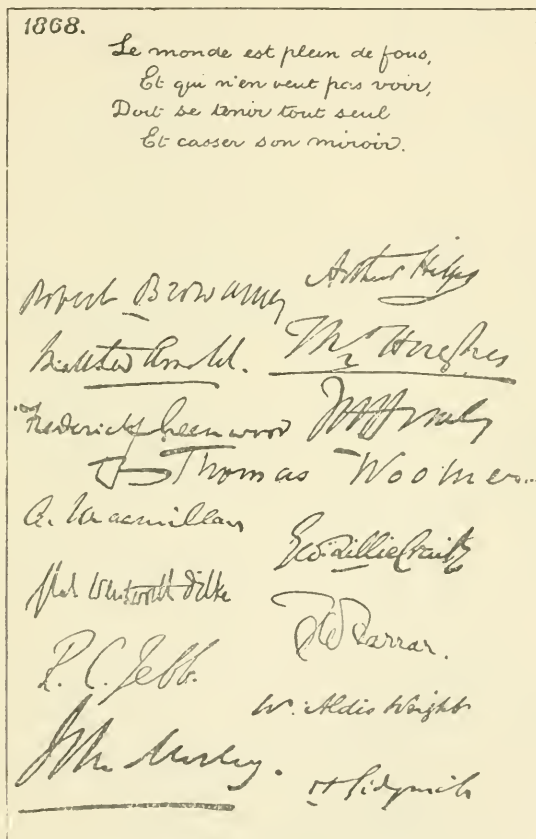 1868.
Le monde est plein de fous,
Et qui n'en veut pas voir,
Doit se tenir tout seul
Et casser son miroir.
Arthur Helps
Robert Browning
Matthew Arnold.
Thos Hughes
Frederick Greenwood
Thomas Woolner
A. Macmillan
Geo. Lillie Craik
Wentworth Dilke
F W Farrar.
R. C. Jebb.
W. Aldis Wright
John Morley.
H Sidgwick